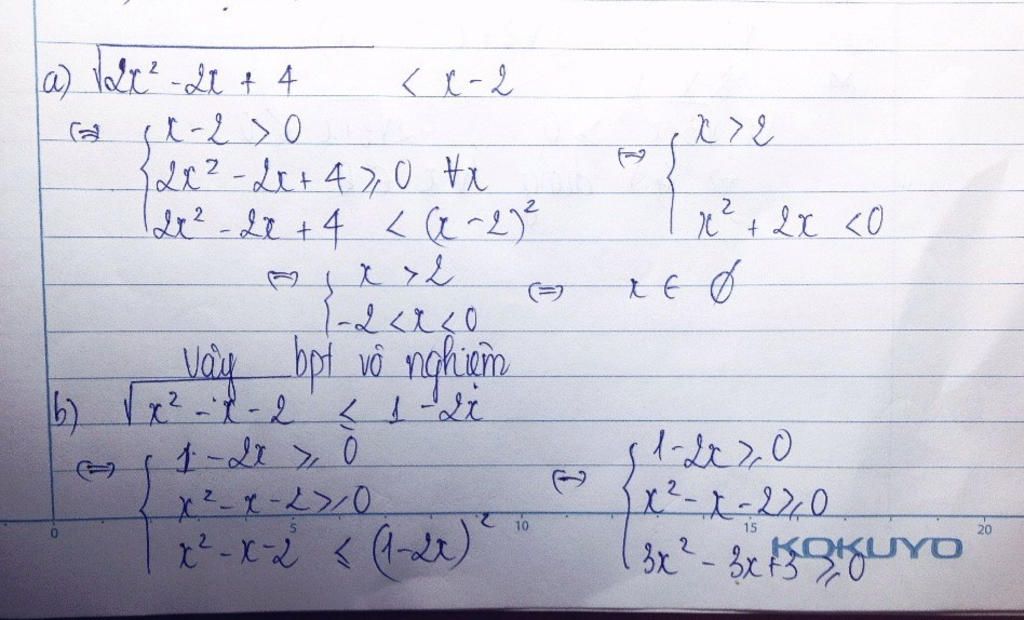 a) √2x² - 2x + 4 < x - 2
⇔ { x - 2 > 0
2x² - 2x + 4 ≥ 0 ∀x
2x² - 2x + 4 < (x - 2)²
⇔ { x > 2
x² + 2x < 0
⇔ { x > 2
-2 < x < 0
⇔ x ∈ ∅
Vậy bpt vô nghiệm
b) √x² - x - 2 ≤ 1 - 2x
⇔ { 1 - 2x ≥ 0
x² - x - 2 ≥ 0
x² - x - 2 ≤ (1 - 2x)²
⇔ { 1 - 2x ≥ 0
x² - x - 2 ≥ 0
3x² - 3x + 3 ≥ 0
0 5 10 15 20
KOKUYO